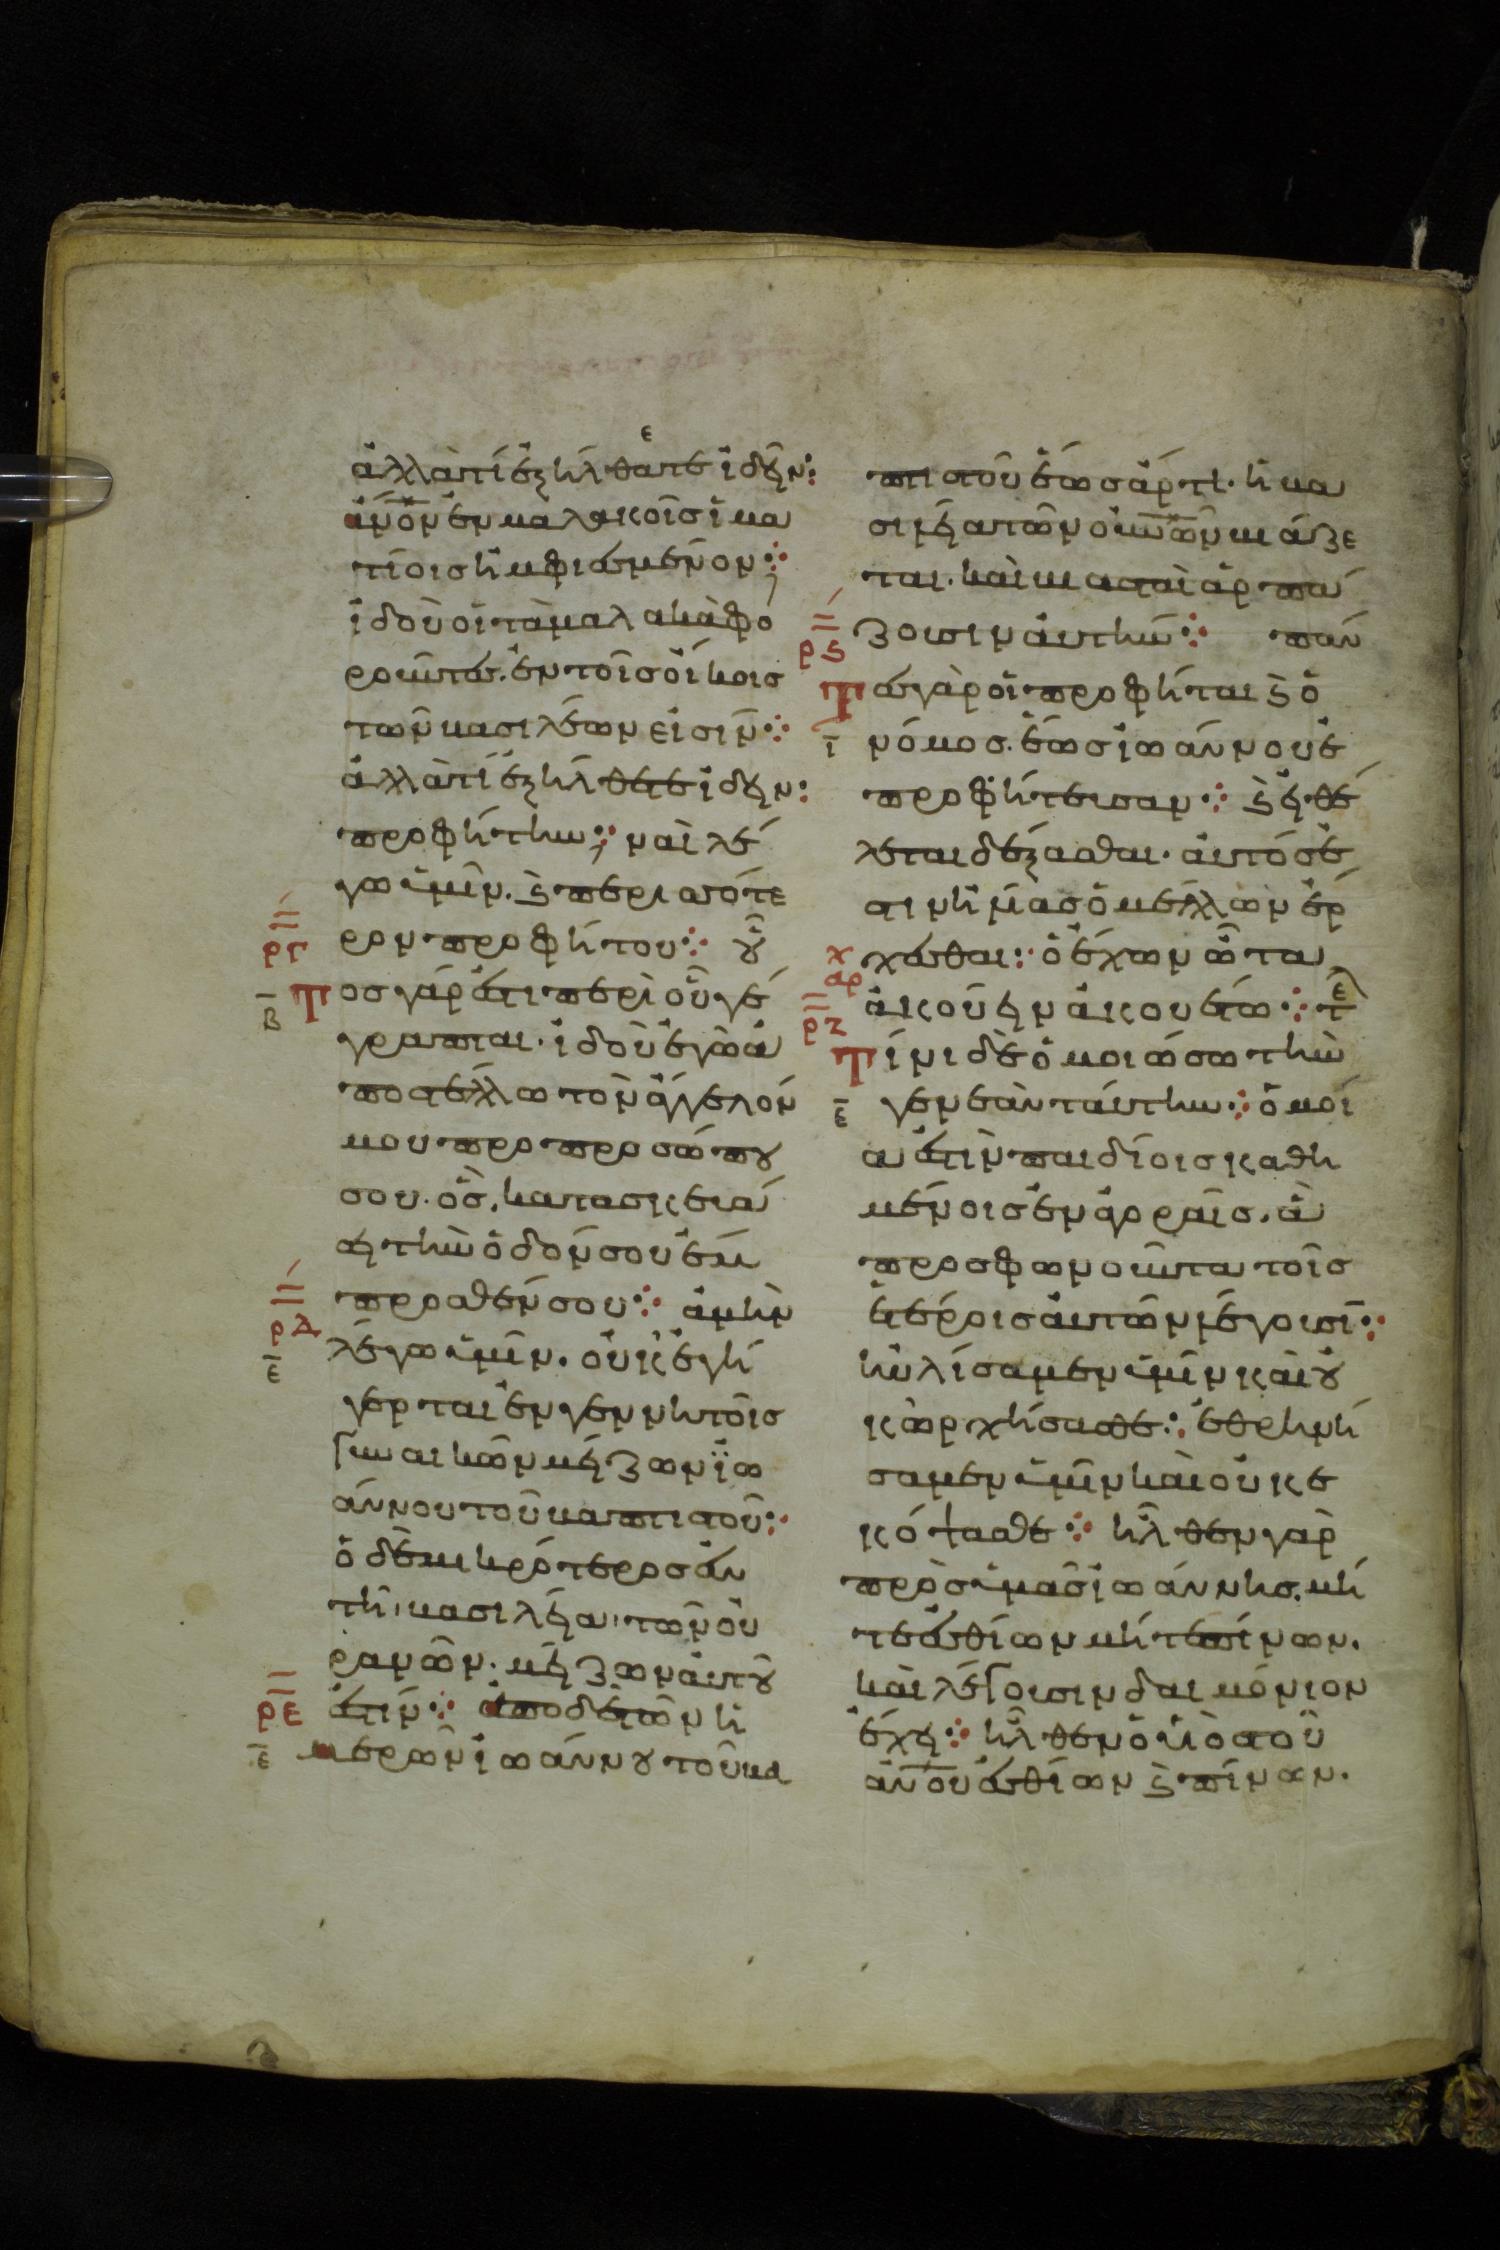 ε
ἀλλὰ τί ἐξήλθατε ἰδεῖν:
ἄν̅ο̅ν ἐν μαλακοῖς ἱμα
τίοις ἠμφιεσμένον ⁘
ἰδοὺ οἱ τὰ μαλακὰ φο
ροῦντες. ἐν τοῖς οἴκοις
τῶν βασιλέων εἰσὶν ⁘
ἀλλὰ τί ἐξήλθετε ἰδεῖν:
προφήτην; ναὶ λέ
γω ὑμῖν. ϗ περισσότε
ρον προφήτου ⁘ οὗ
ργ
β̅
Τος γάρ ἐστι περὶ οὗ γέ
γραπται. ἰδοὺ ἐγὼ ἀ
ποστέλλω τὸν ἄγγελόν
μου προ προσώπου
σου. ὃς, κατασκευά
σει τὴν ὁδόν σου ἔμ
προσθέν σου ⁘ ἀμὴν
ρδ
ε̅
λέγω ὑμῖν. οὐκ ἐγή
γερται ἐν γεννητοῖς
γυναικῶν μείζων ϊω
άννου τοῦ βαπτιστοῦ ⁘
ὁ δὲ μικρότερος ἐν
τῆι βασιλεία τῶν οὐ
ρανῶν. μείζων αὐτοῦ
ρε
ἐστίν ⁘ ἀπο δὲ τῶν ἡ
ε̅
μερῶν ἰωάννου τοῦ βα
πτιστοῦ ἕως ἄρτι. ἡ βα
σιλεία τῶν οὐν̅ω̅ν βιάζε
ται. καὶ βιασταὶ ἁρπά
ζουσιν αὐτήν ⁘ πάν
ρϛ
Τες γὰρ οἱ προφήται ϗ ὁ
ι̅
νόμος. ἕως ἰωάννου ἐ
προφήτευσαν ⁘ ϗ εἰ θέ
λεται δέξασθαι. αὐτός ἐ
στιν ἠλίας ὁ μέλλων ἔρ
χεσθαι: ὁ ἔχων ὦτα
χ
αρ
ἀκούειν ἀκουέτω ⁘ τε
ρζ
Τίνι δὲ ὁμοιώσω τὴν
ε̅
γενεὰν ταύτην ⁘ ὁμοί
α ἐστὶν παιδίοις καθη
μένοις ἐν ἀγοραῖς. ἃ
προσφωνοῦντα τοῖς
ἑτέροις αὐτῶν λέγουσι ⁘
ηὐλίσαμεν ὑμῖν καὶ οὐ
κ ὠρχήσασθε ⁘ ἐθρηνή
σαμεν ὑμῖν καὶ οὐκ ἐ
κόψασθε ⁘ ἦλθεν γὰρ
πρὸς ὑμᾶς ἰωάννης. μή
τε ἐσθίων μήτε πίνων.
καὶ λέγουσιν δαιμόνιον
ἔχει ⁘ ἦλθεν ὁ υἱὸς τοῦ
ἀν̅ο̅υ ἐσθίων ϗ πίνων.